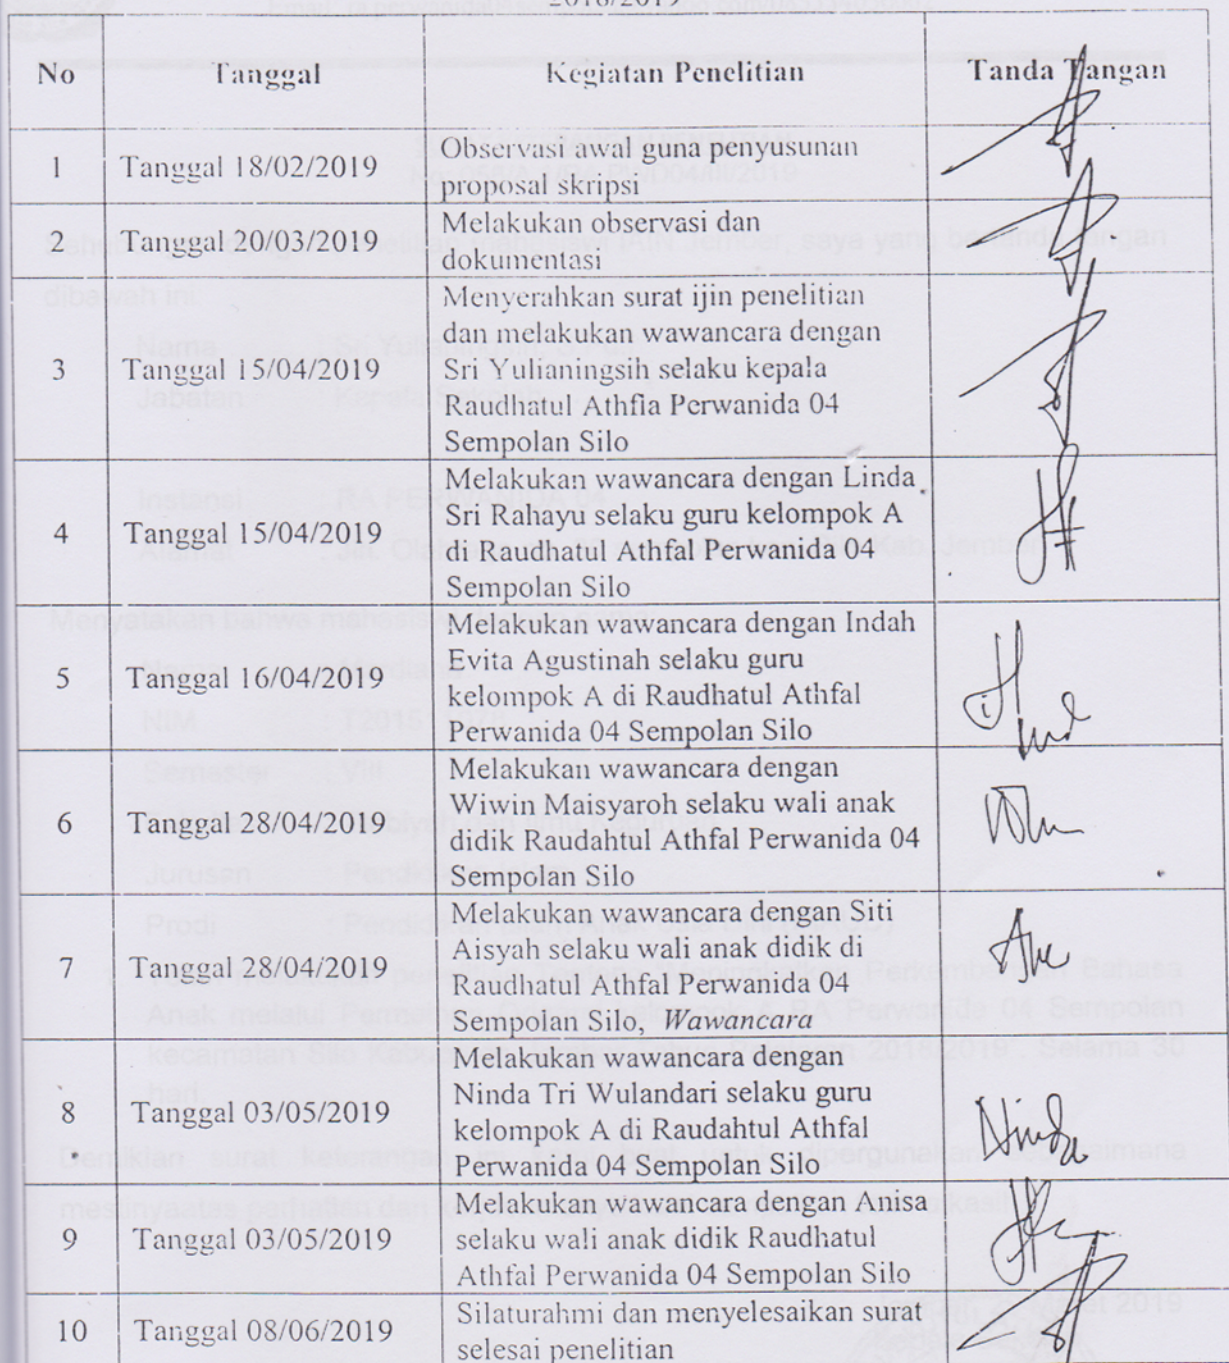 2018/2019
No Tanggal Kegiatan Penelitian Tanda Tangan
1 Tanggal 18/02/2019 Observasi awal guna penyusunan
proposal skripsi
2 Tanggal 20/03/2019 Melakukan observasi dan
dokumentasi
3 Tanggal 15/04/2019 Menyerahkan surat ijin penelitian
dan melakukan wawancara dengan
Sri Yulianingsih selaku kepala
Raudhatul Athfia Perwanida 04
Sempolan Silo
4 Tanggal 15/04/2019 Melakukan wawancara dengan Linda
Sri Rahayu selaku guru kelompok A
di Raudhatul Athfal Perwanida 04
Sempolan Silo
5 Tanggal 16/04/2019 Melakukan wawancara dengan Indah
Evita Agustinah selaku guru
kelompok A di Raudhatul Athfal
Perwanida 04 Sempolan Silo
6 Tanggal 28/04/2019 Melakukan wawancara dengan
Wiwin Maisyaroh selaku wali anak
didik Raudahtul Athfal Perwanida 04
Sempolan Silo
7 Tanggal 28/04/2019 Melakukan wawancara dengan Siti
Aisyah selaku wali anak didik di
Raudhatul Athfal Perwanida 04
Sempolan Silo, Wawancara
8 Tanggal 03/05/2019 Melakukan wawancara dengan
Ninda Tri Wulandari selaku guru
kelompok A di Raudahtul Athfal
Perwanida 04 Sempolan Silo
Ninda
9 Tanggal 03/05/2019 Melakukan wawancara dengan Anisa
selaku wali anak didik Raudhatul
Athfal Perwanida 04 Sempolan Silo
10 Tanggal 08/06/2019 Silaturahmi dan menyelesaikan surat
selesai penelitian